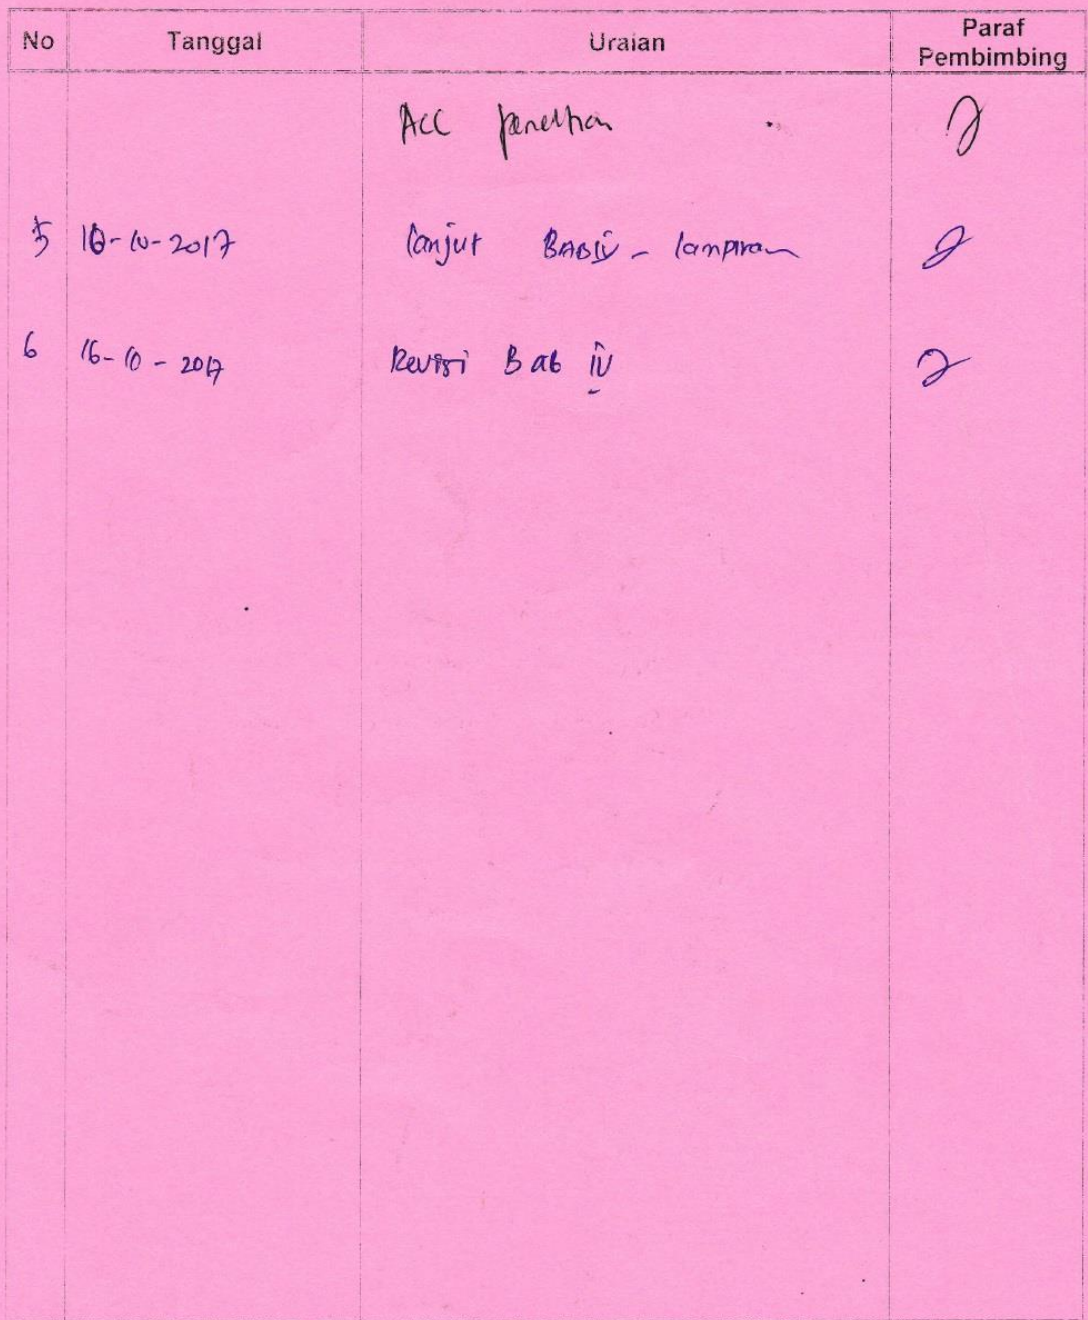 No Tanggal Uraian Paraf Pembimbing
ACC penelitian
5 10-10-2017 lanjut BAB IV - lampiran
6 16-10-2017 Revisi Bab IV